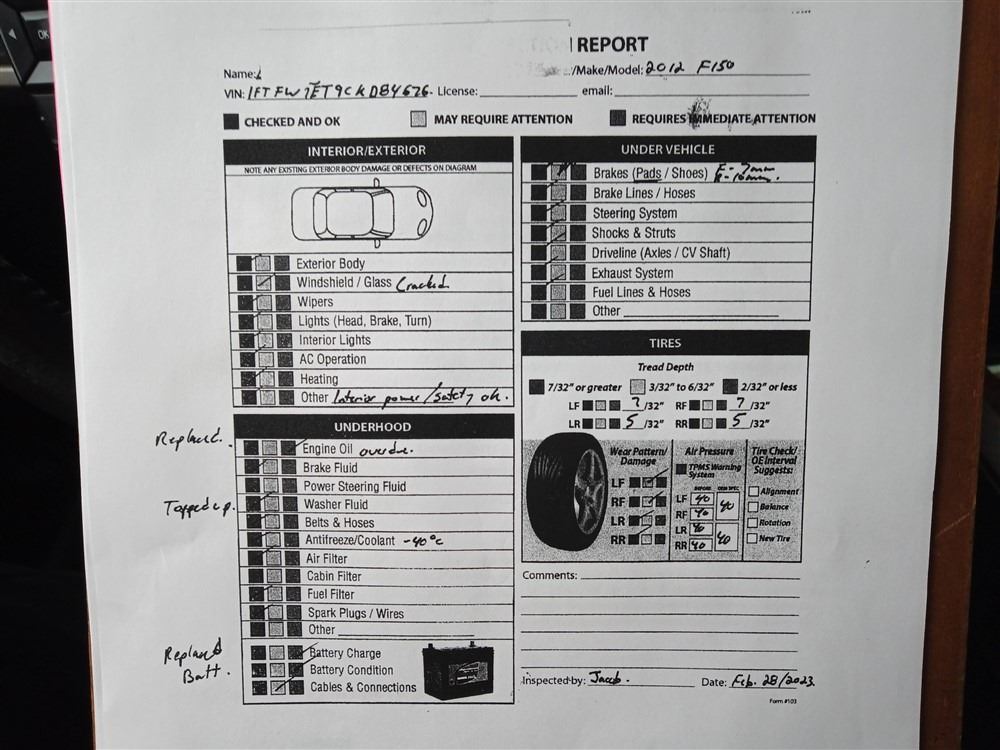 OK
REPORT
Name:
/Make/Model: 2012 F150
VIN: 1FTFW1ET9CKD84676. License: email:
CHECKED AND OK MAY REQUIRE ATTENTION REQUIRES IMMEDIATE ATTENTION
INTERIOR/EXTERIOR
NOTE ANY EXISTING EXTERIOR BODY DAMAGE OR DEFECTS ON DIAGRAM
Exterior Body
Windshield / Glass Cracked
Wipers
Lights (Head, Brake, Turn)
Interior Lights
AC Operation
Heating
Other Interior power/safety ok.
UNDERHOOD
Replaced. Engine Oil overdue.
Brake Fluid
Power Steering Fluid
Topped up. Washer Fluid
Belts & Hoses
Antifreeze/Coolant -40°c
Air Filter
Cabin Filter
Fuel Filter
Spark Plugs / Wires
Other
Replaced Batt.
Battery Charge
Battery Condition
Cables & Connections
UNDER VEHICLE
Brakes (Pads / Shoes) F- 7mm
R- 10mm.
Brake Lines / Hoses
Steering System
Shocks & Struts
Driveline (Axles / CV Shaft)
Exhaust System
Fuel Lines & Hoses
Other
TIRES
Tread Depth
7/32" or greater 3/32" to 6/32" 2/32" or less
LF 7 /32" RF 7 /32"
LR 5 /32" RR 5 /32"
Wear Pattern/
Damage
LF
RF
LR
RR
Air Pressure
TPMS Warning
System
BEFORE OEM SPEC
LF 40 40
RF 40
LR 40 40
RR 40
Tire Check/
OE Interval
Suggests:
Alignment
Balance
Rotation
New Tire
Comments:
Inspected by: Jacob. Date: Feb. 28/2023.
Form #103